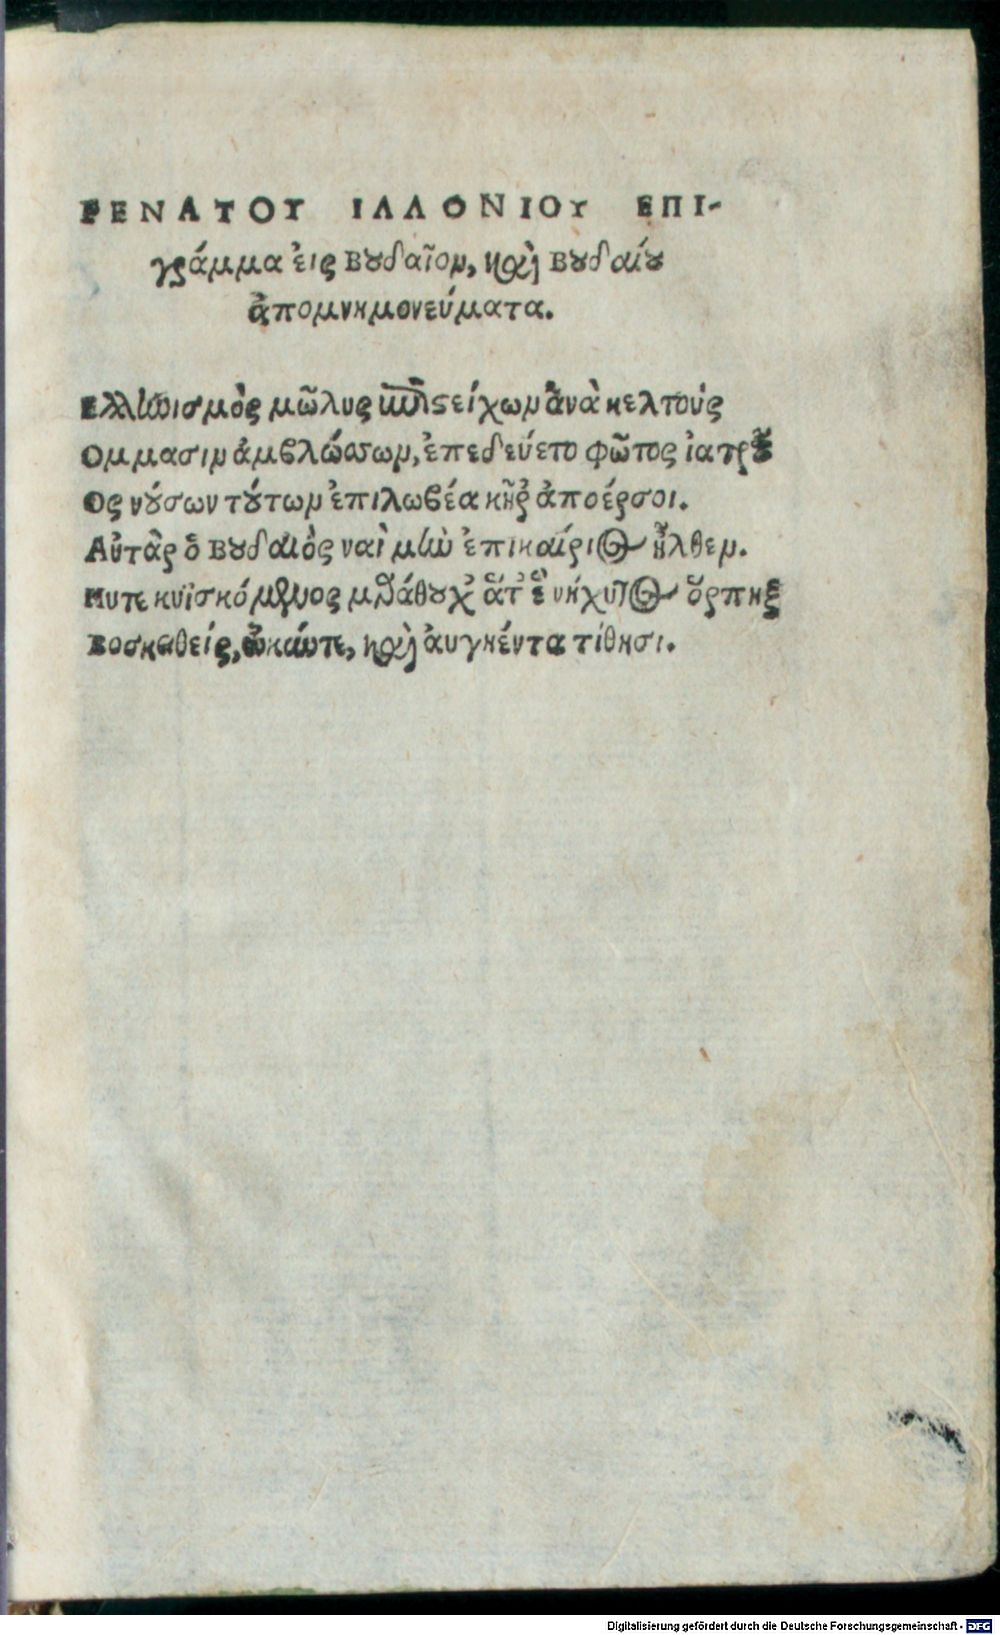 ΡΕΝΑΤΟΥ ΙΛΛΟΝΙΟΥ ΕΠΙ-
γράμμα εἰς Βουδαῖον, καὶ Βουδαίου
ἀπομνημονεύματα.
Ελληνισμὸς μῶλυς ἀνὰ κελτοὺς
Ομμασιν ἀμβλώσσων, ἐπεδεύετο φῶτος ἰατροῦ
Ος νούσων τούτων ἐπιλωβέα κῆρ ἀποέρσοι.
Αὐτὰρ ὁ Βουδαιὸς ναὶ μὴν ἐπικαίριος ἦλθεν.
Ηυτε κυϊσκόμενος ὄρπηξ
Βοσκηθείς, καὶ αὐγήεντα τίθησι.
Digitalisierung gefördert durch die Deutsche Forschungsgemeinschaft - DFG